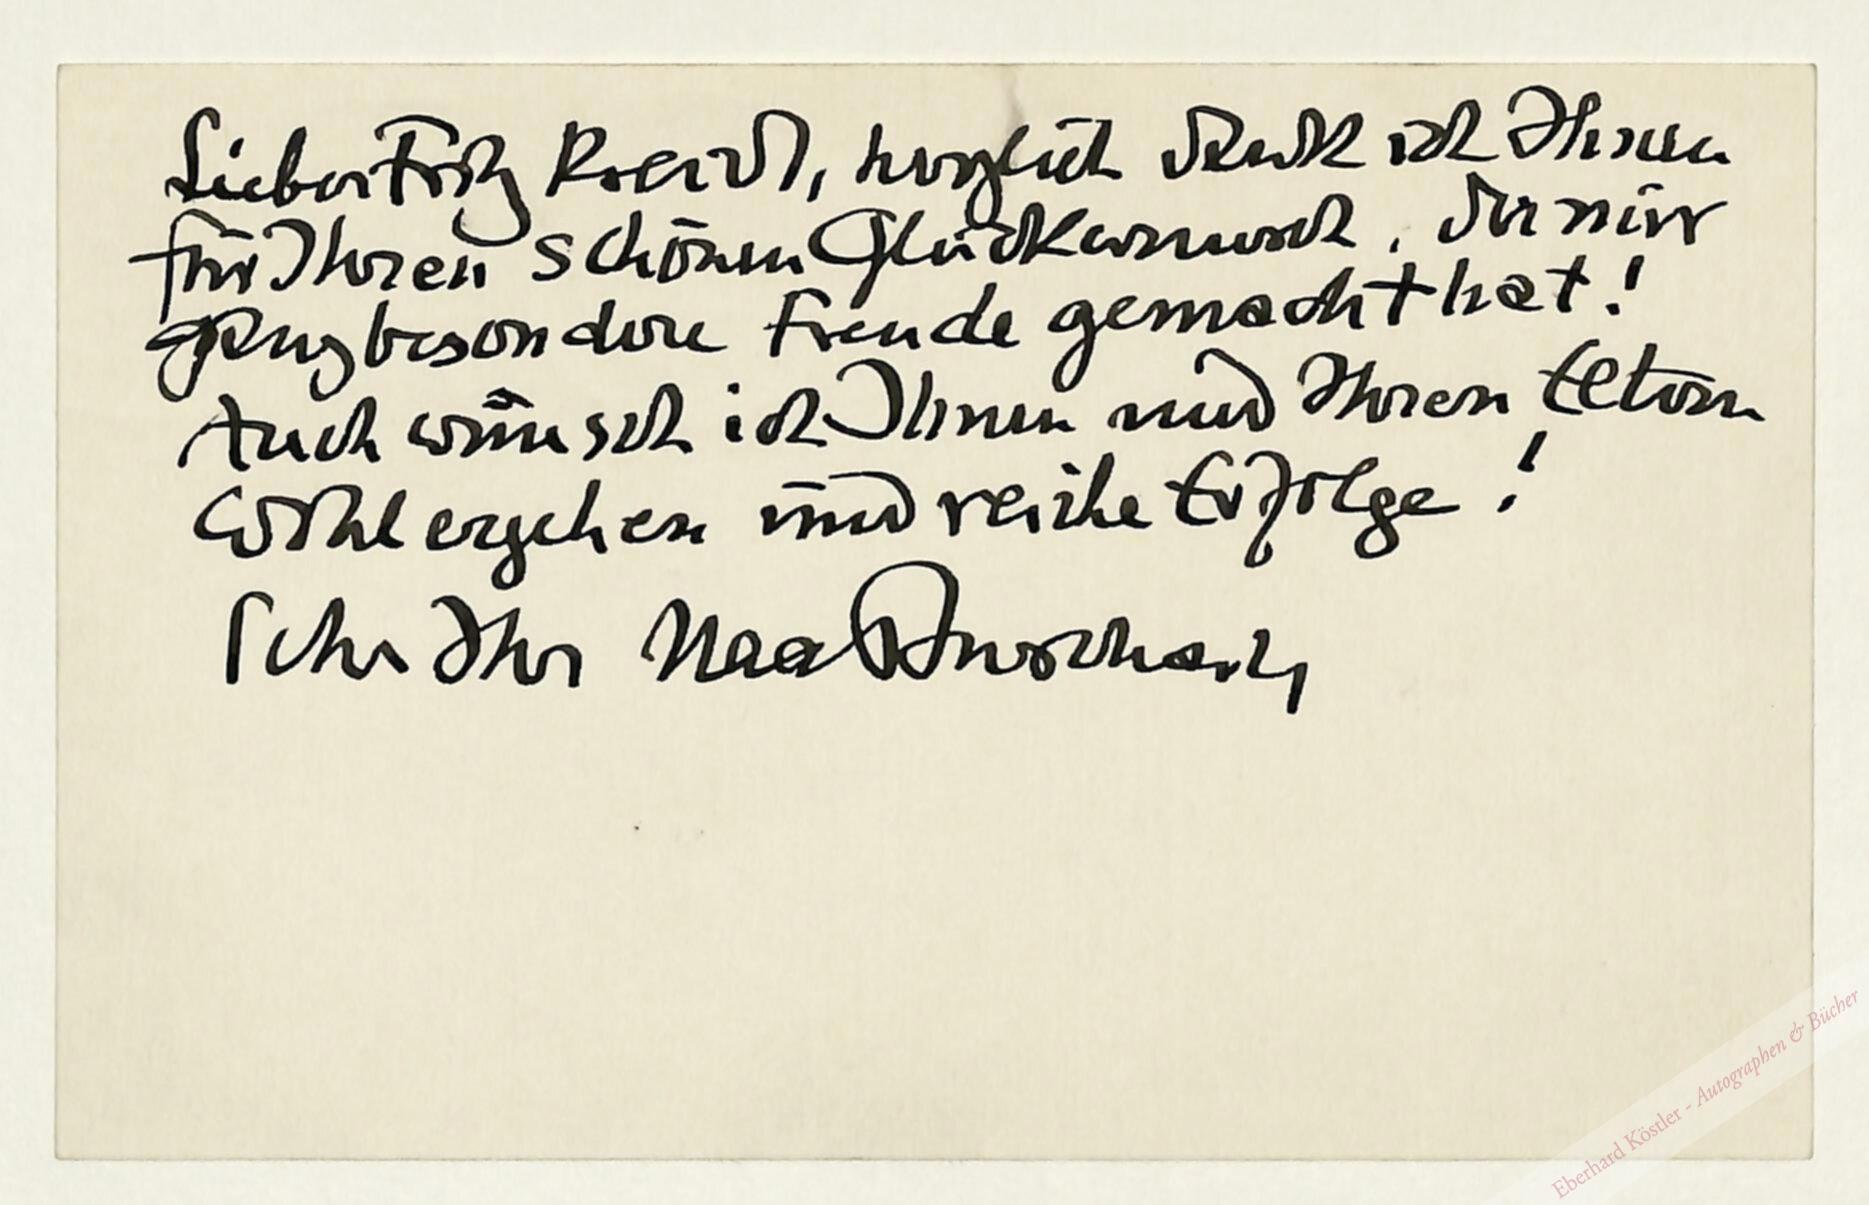 Lieber Fritz herzlich dank ich Ihnen
für Ihren schönen Glückwunsch, der mir
ganz besondere Freude gemacht hat!
Auch wünsch ich Ihnen und Ihren Eltern
Wohlergehen und reiche Erfolge!
Sehr Ihr Max Burchartz
Eberhard Köstler - Autographen & Bücher